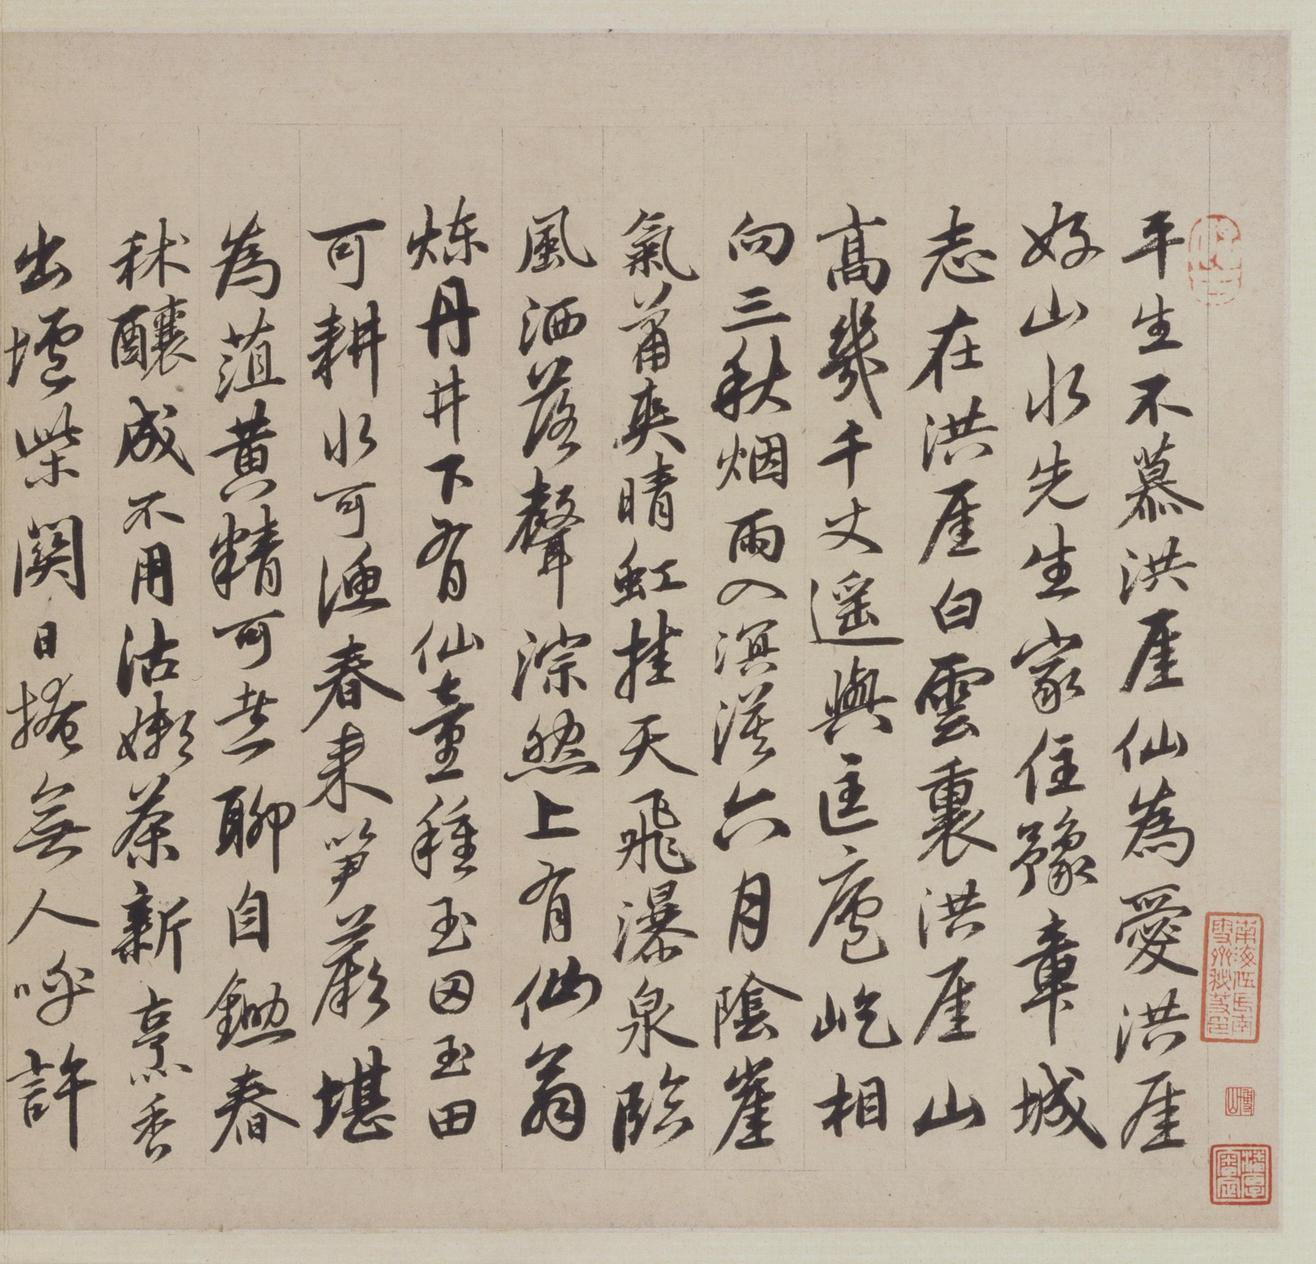 平生不慕洪厓仙為愛洪厓
好山水先生家住豫章城
志在洪厓白雲裏洪厓山
髙幾千丈遥與匡廬屹相
向三秋烟雨入溟漠六月陰崖
氣萧爽晴虹挂天飛瀑泉臨
風洒落聲淙然上有仙翁
煉丹井下有仙童種玉田玉田
可耕水可漁春来笋蕨堪
為葅黄精可煮聊自鋤春
秫釀成不用沽嫩茶新烹香
出壚柴関日掩無人呼許